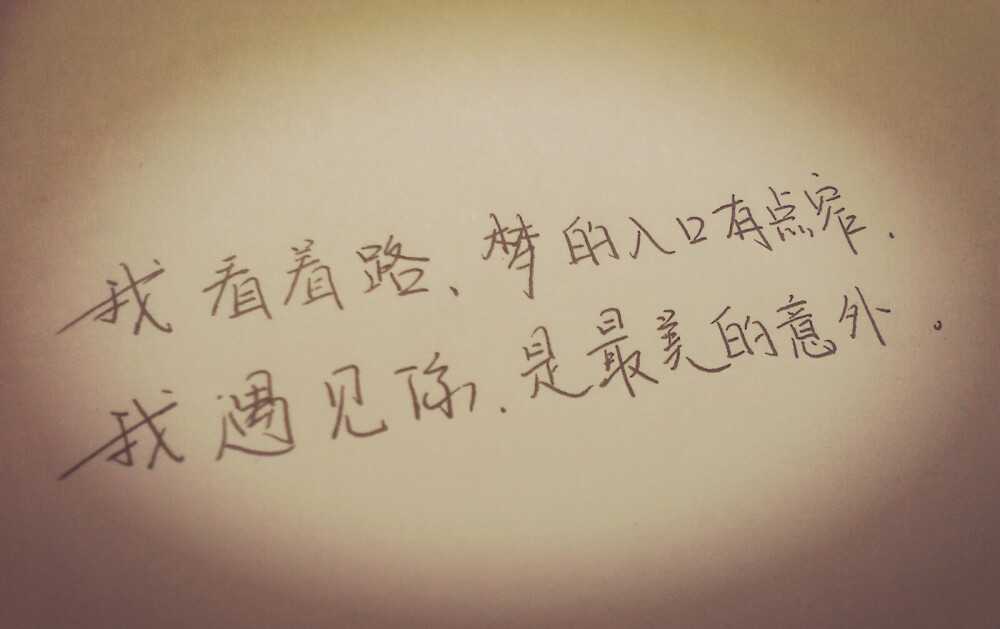 我看着路、梦的入口有点窄.
我遇见你.是最美的意外。